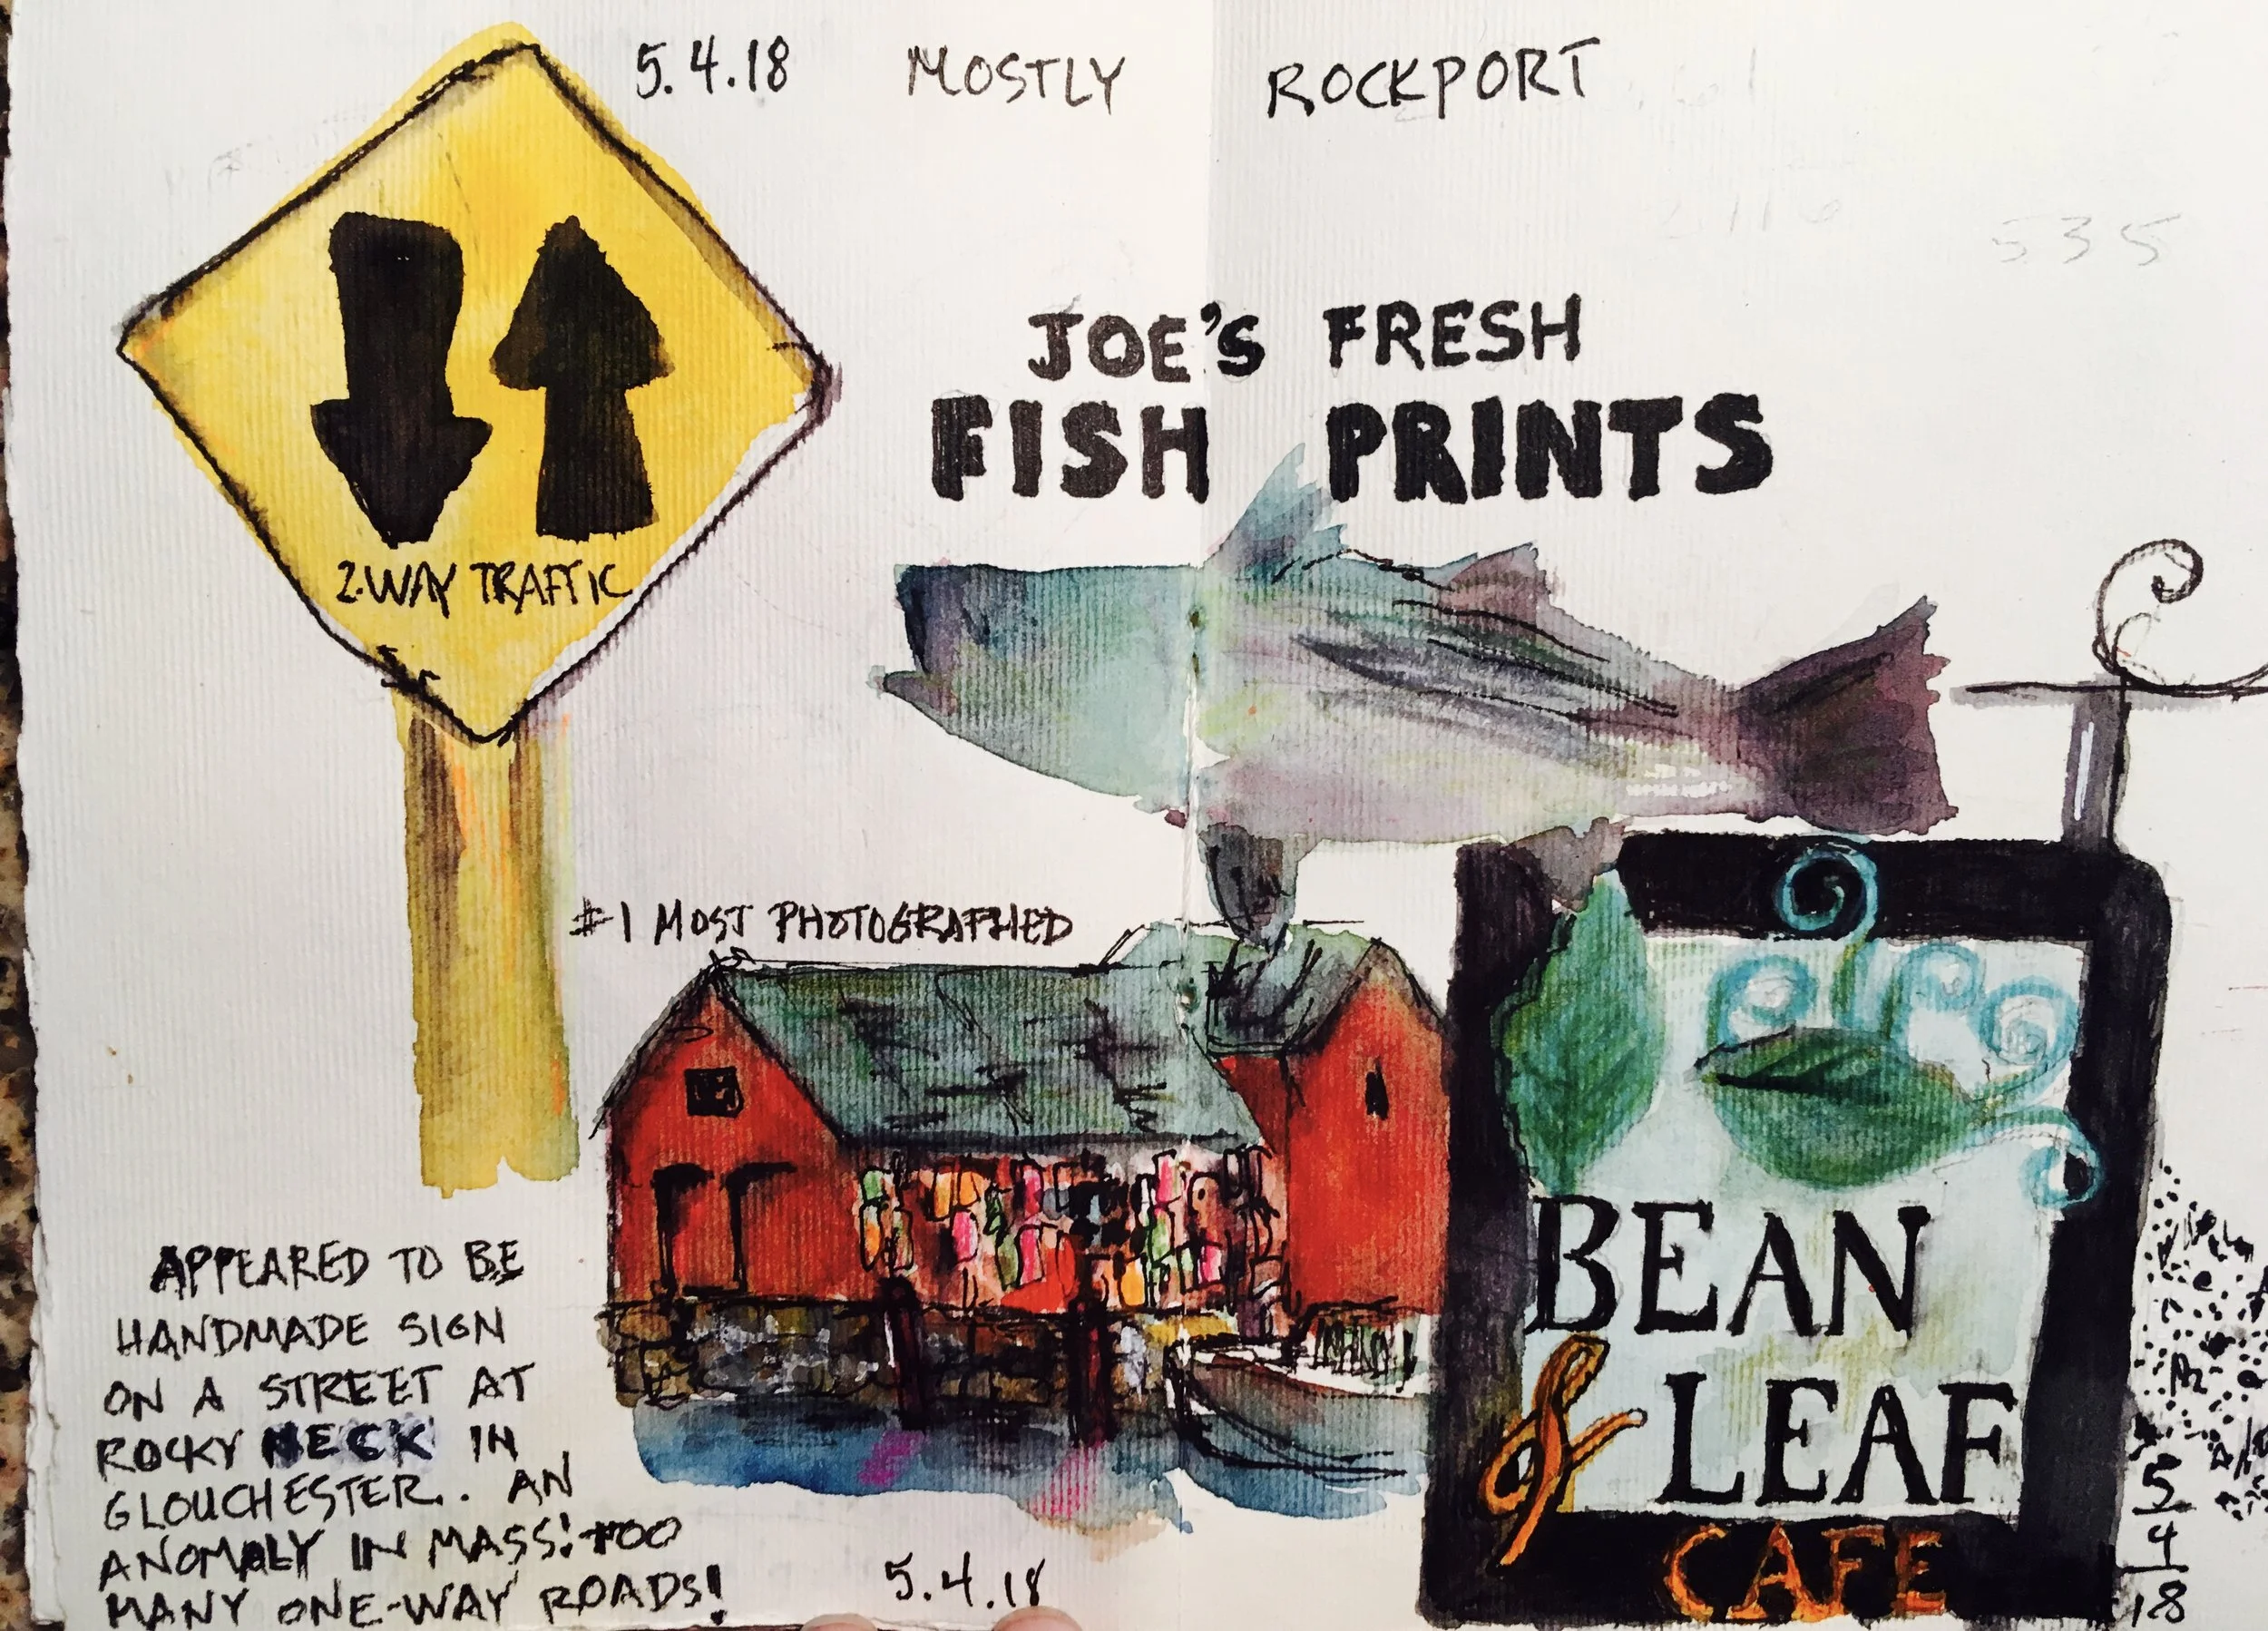 5.4.18 MOSTLY ROCKPORT
535
JOE'S FRESH
FISH PRINTS
2-WAY TRAFFIC
#1 MOST PHOTOGRAPHED
BEAN
& LEAF
CAFE
APPEARED TO BE
HANDMADE SIGN
ON A STREET AT
ROCKY NECK IN
GLOUCHESTER. AN
ANOMALY IN MASS! TOO
MANY ONE-WAY ROADS!
5.4.18
5
4
18